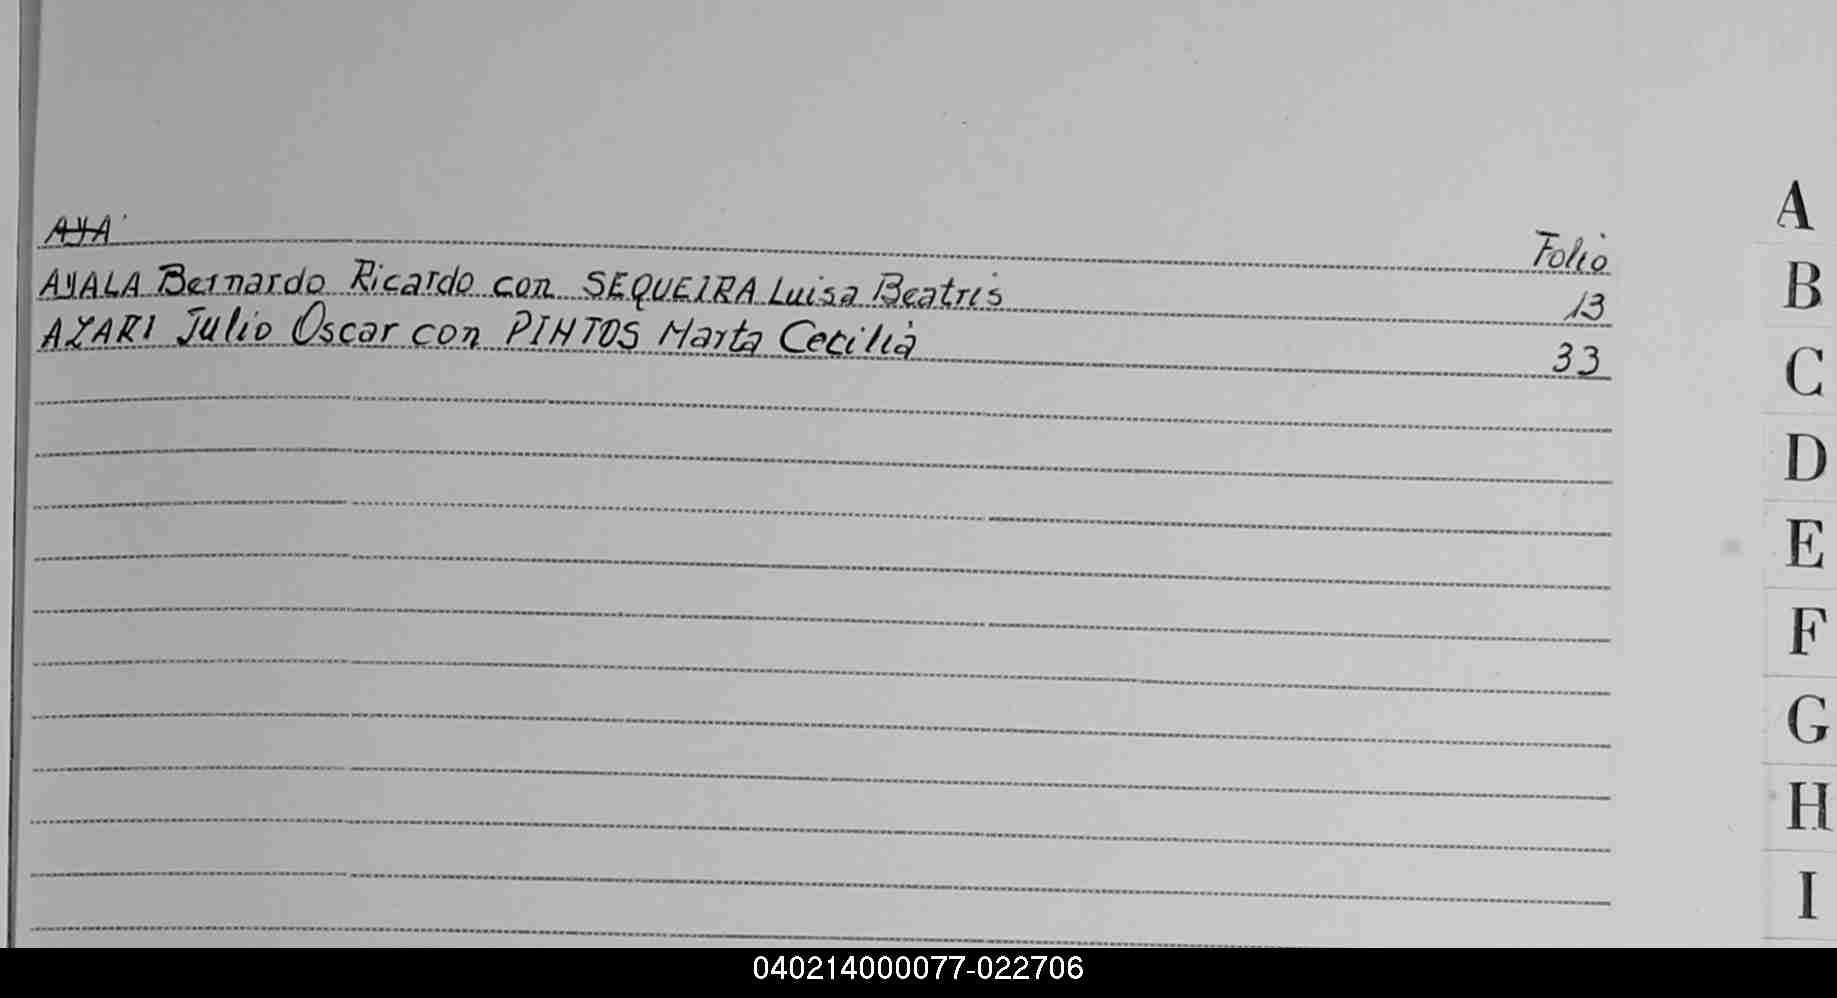 AYA
Folio
AYALA Bernardo Ricardo con SEQUEIRA Luisa Beatris 13
AZARI Julio Oscar con PINTOS Marta Cecilia 33
A
B
C
D
E
F
G
H
I
040214000077-022706